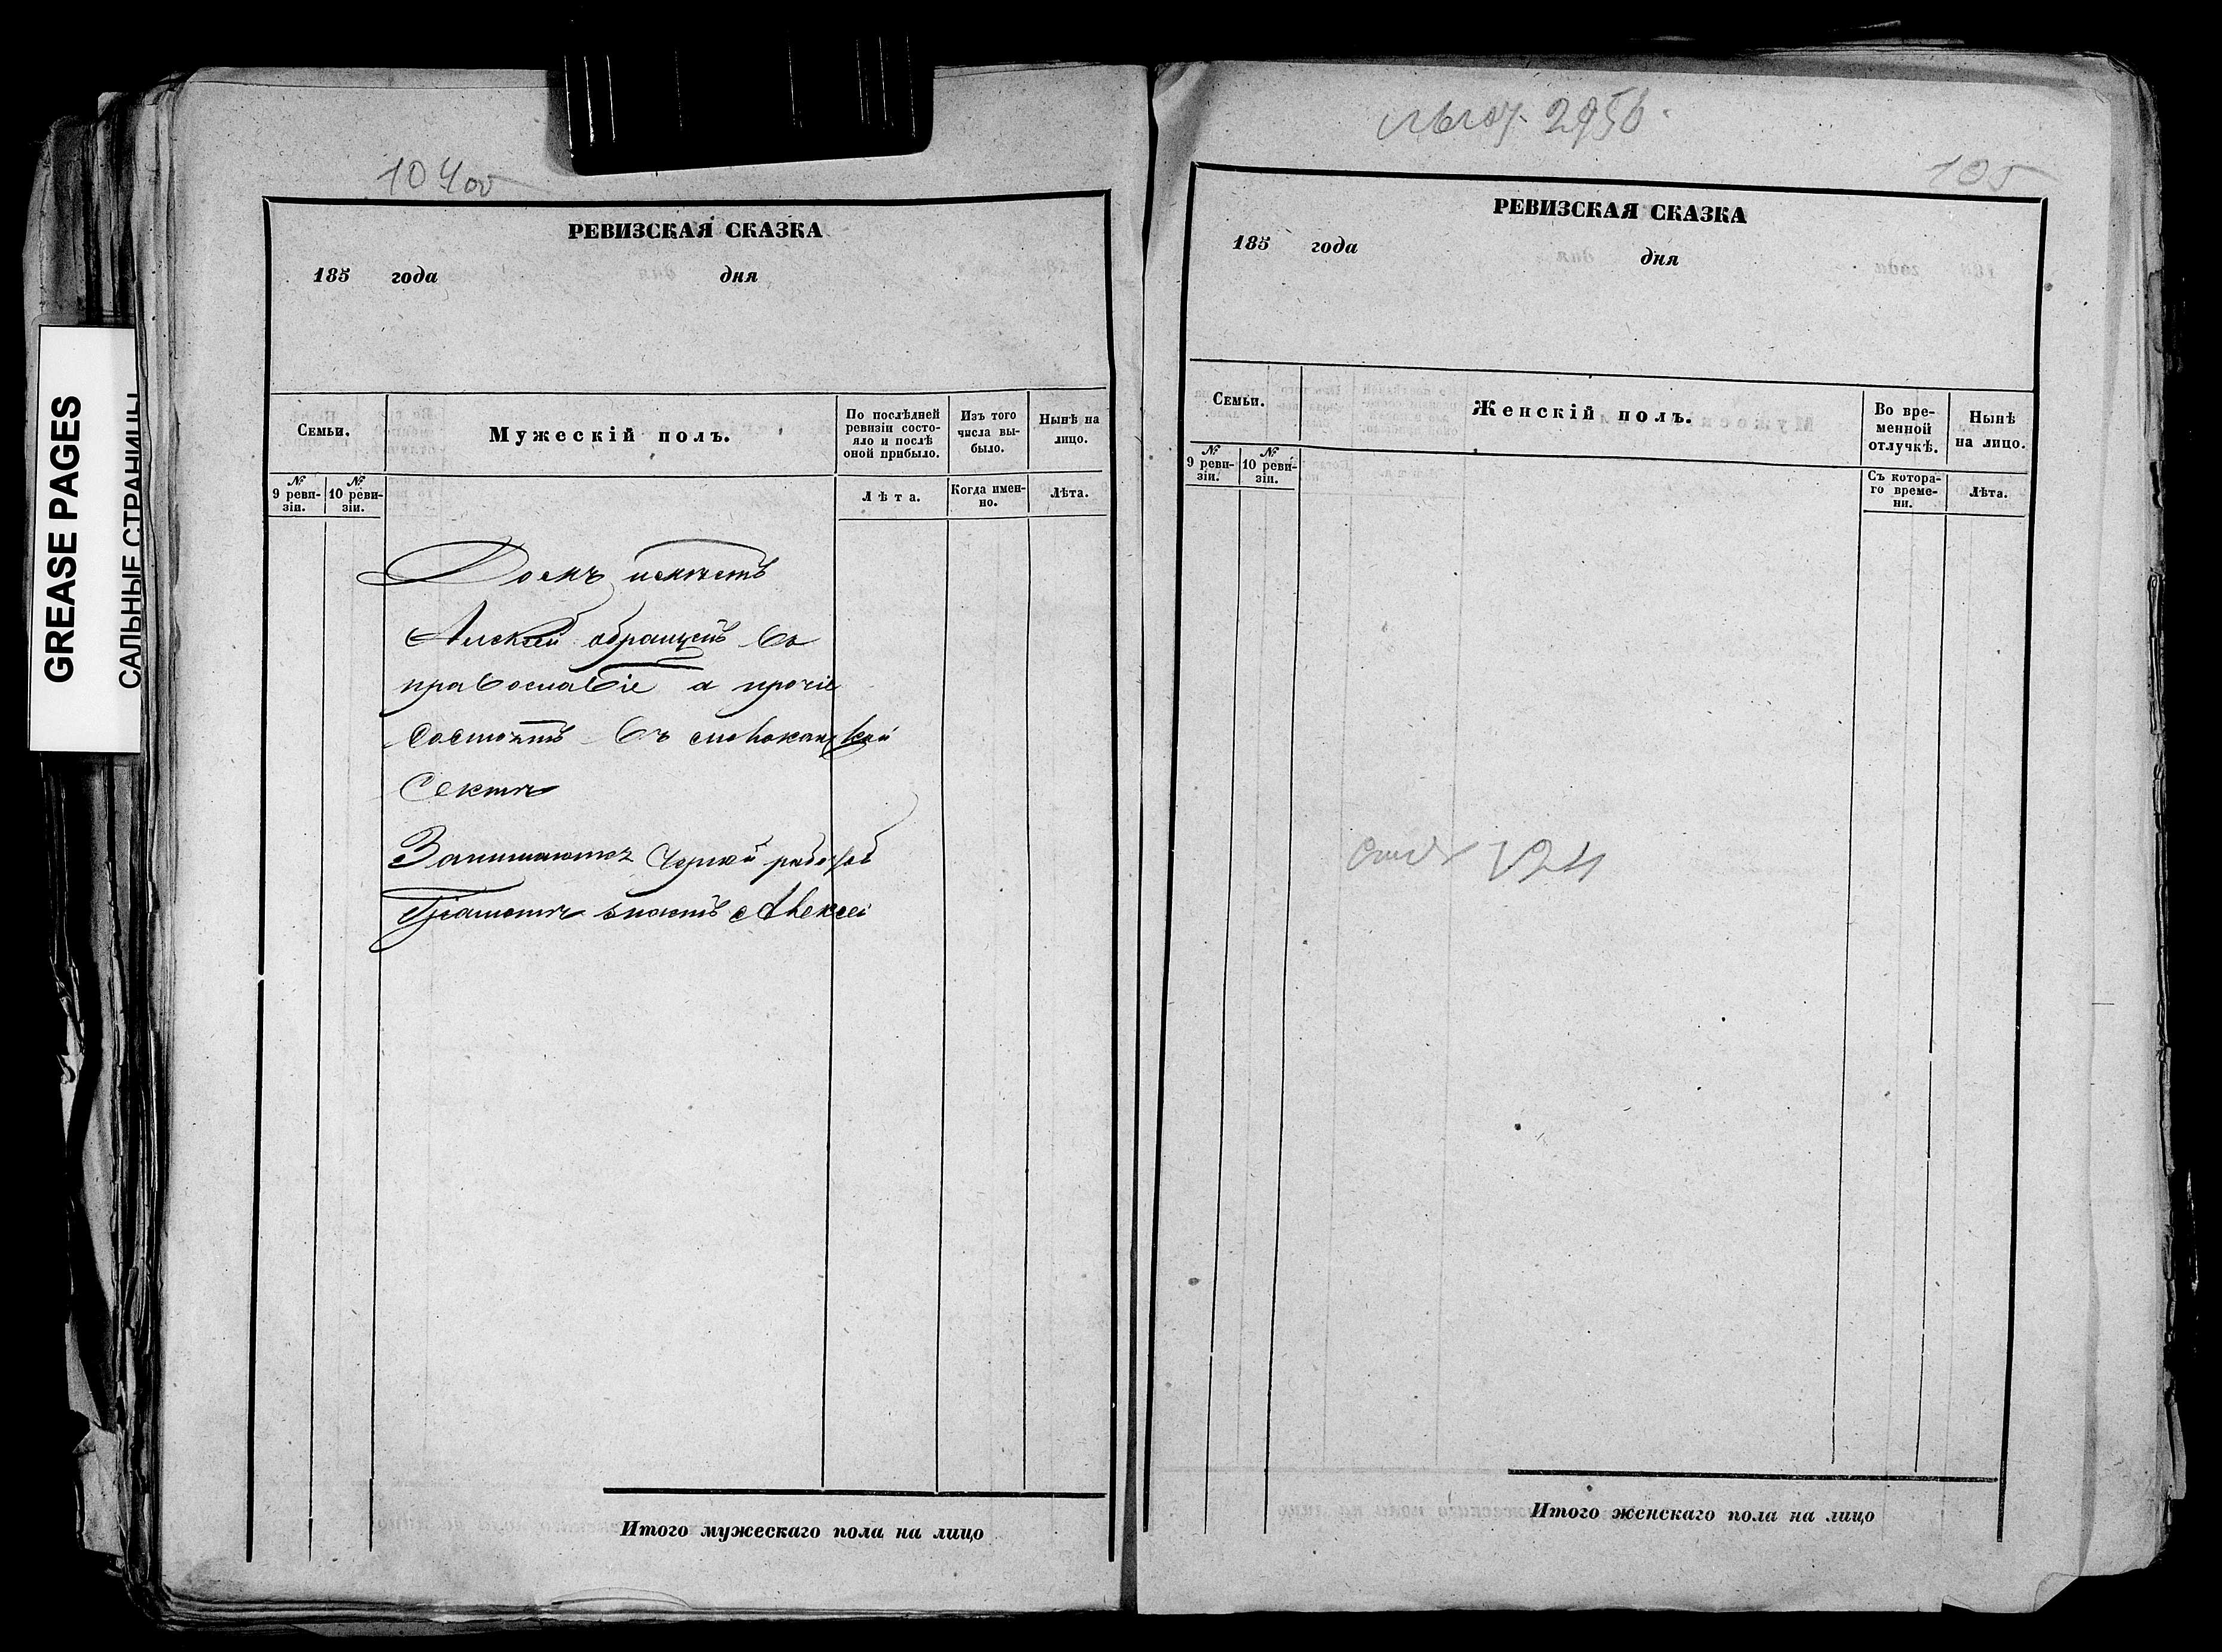 GREASE PAGES
САЛЬНЫЕ СТРАНИЦЫ
104об
РЕВИЗСКАЯ СКАЗКА
185 года дня
Семьи.
Мужескій полъ.
По послѣдней ревизіи состояло и послѣ оной прибыло.
Изъ того числа выбыло.
Нынѣ на лицо.
№ 9 ревизіи.
№ 10 ревизіи.
Лѣта.
Когда именно.
Лѣта.
Домъ имѣетъ
Алексей обращенъ во
православіе а прочіе
состоятъ въ молоканской
Сектѣ
Занимаются Черной работой
Грамоте знаетъ Алексей
Итого мужескаго пола на лицо
105
РЕВИЗСКАЯ СКАЗКА
185 года дня
Семьи.
Женскій полъ.
Во временной отлучкѣ.
Нынѣ на лицо.
№ 9 ревизіи.
№ 10 ревизіи.
Съ котораго времени.
Лѣта.
Итого женскаго пола на лицо